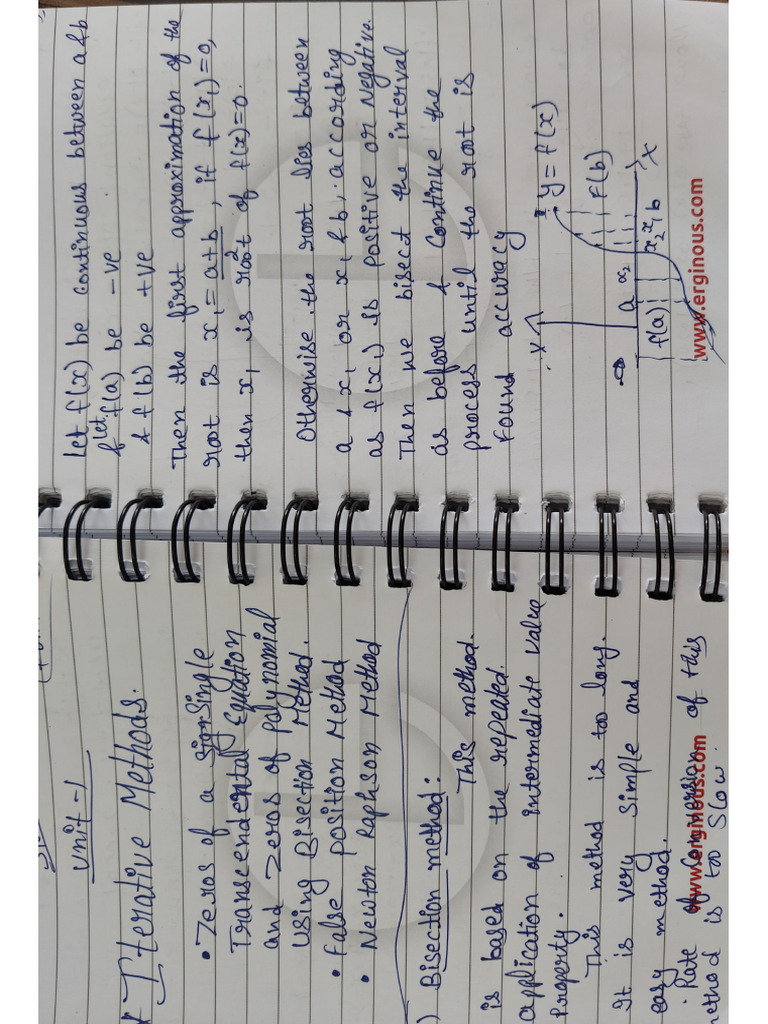 Unit-1
* Iterative Methods.
• Zeros of a single
Transcendental Equation
and Zeros of Polynomial
Using Bisection Method.
• False Position Method
• Newton Raphson Method
) Bisection method:
This method.
is based on the repeated.
application of intermediate value
Property.
This method is too long.
It is very simple and
easy method.
• Rate of Conversion of this
method is too slow.
www.erginous.com
Let f(x) be continuous between a & b
& let f(a) be -ve
& f(b) be +ve
Then the first approximation of the
root is x₁ = a+b/2, if f(x₁)=0,
then x₁ is root of f(x)=0.
Otherwise the root lies between
a & x₁ or x₁ & b, according
as f(x₁) is positive or Negative
Then we bisect the interval
as before & continue the
process until the root is
Found accuracy
y = f(x)
a x₂
f(a)
F(b)
x₂ x₁ b
x
www.erginous.com